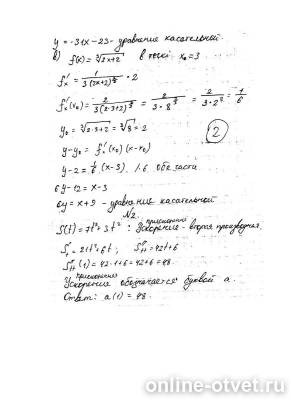 y = -31x - 23 - уравнение касательной.
в) f(x) = ∛(2x+2) в точке x₀ = 3
f'ₓ = 1/(3(2x+2)^(2/3)) · 2
f'ₓ(x₀) = 2/(3(2·3+2)^(2/3)) = 2/(3·8^(2/3)) = 2/(3·2²) = 1/6
y₀ = ∛(2·3+2) = ∛8 = 2
y - y₀ = f'ₓ(x₀)(x - x₀)
②
y - 2 = 1/6 (x - 3) | ·6 Обе части
6y - 12 = x - 3
6y = x + 9 - уравнение касательной
N2.
S(t) = 7t³ + 3t² : Ускорение - вторая производная.
S' = 21t² + 6t ; S'' = 42t + 6
S''(1) = 42·1 + 6 = 42 + 6 = 48.
Ускорение обозначается буквой a.
Ответ: a(1) = 48.
online-otvet.ru